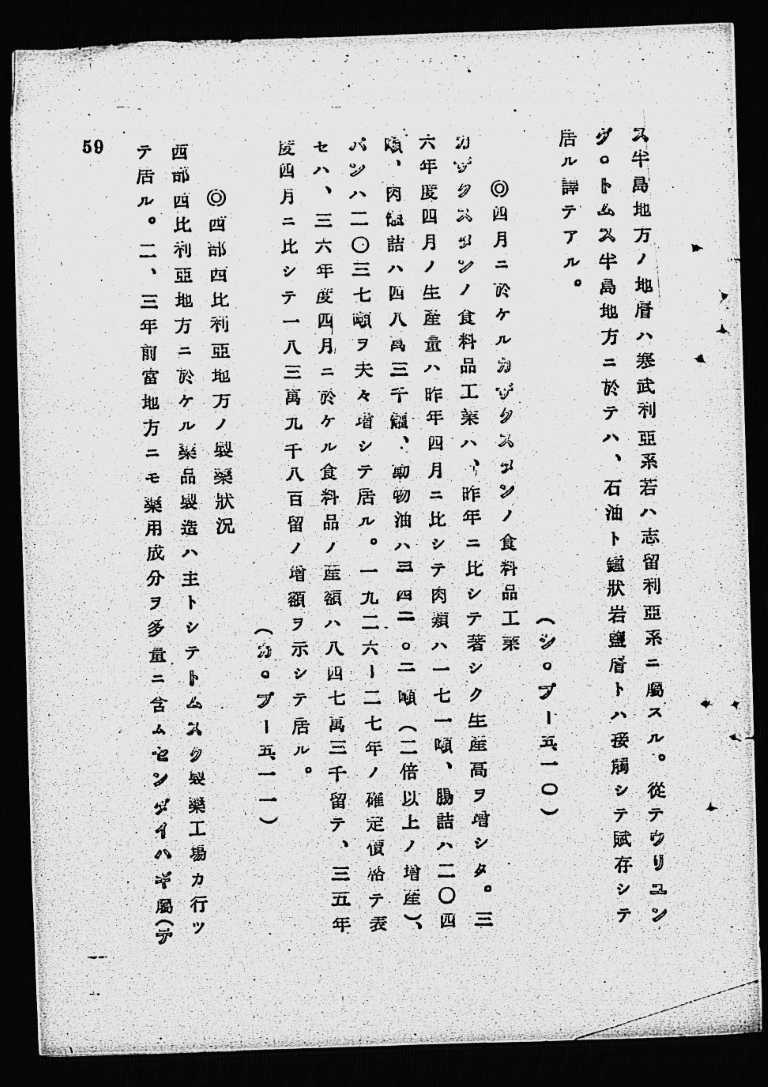 ス半島地方ノ地層ハ寒武利亞系若ハ志留利亞系ニ屬スル。從テウリユン
グ○トムス半島地方ニ於テハ、石油ト鐘狀岩鹽層トハ接觸シテ賦存シテ
居ル譯テアル。
(シ○プー五、一〇)
◎四月ニ於ケルカザクスタンノ食料品工業
カザクスタンノ食料品工業ハ、昨年ニ比シテ著シク生産高ヲ增シタ。三
六年度四月ノ生産量ハ昨年四月ニ比シテ肉類ハ一七一噸、腸詰ハ二〇四
噸、肉罐詰ハ四八萬三千罐、動物油ハ三四二・〇二噸(二倍以上ノ增産)、
パンハ二〇三七噸ヲ夫々增シテ居ル。一九二六ー二七年ノ確定價格テ表
セハ、三六年度四月ニ於ケル食料品ノ産額ハ八四七萬三千留テ、三五年
度四月ニ比シテ一八三萬九千八百留ノ增額ヲ示シテ居ル。
(カ○プー五、一一)
◎西部西比利亞地方ノ製藥狀況
西部西比利亞地方ニ於ケル藥品製造ハ主トシテトムスク製藥工場カ行ツ
テ居ル。二、三年前當地方ニモ藥用成分ヲ多量ニ含ムセンダイハギ屬(テ
59